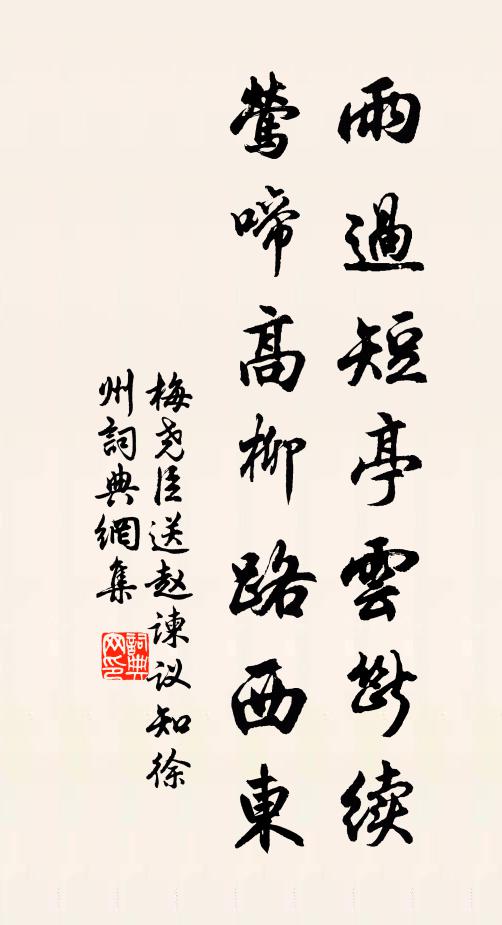 雨過短亭雲斷續
鶯啼高柳路西東
梅尧臣送赵谏议知徐
州詞典網集
詞典
网印